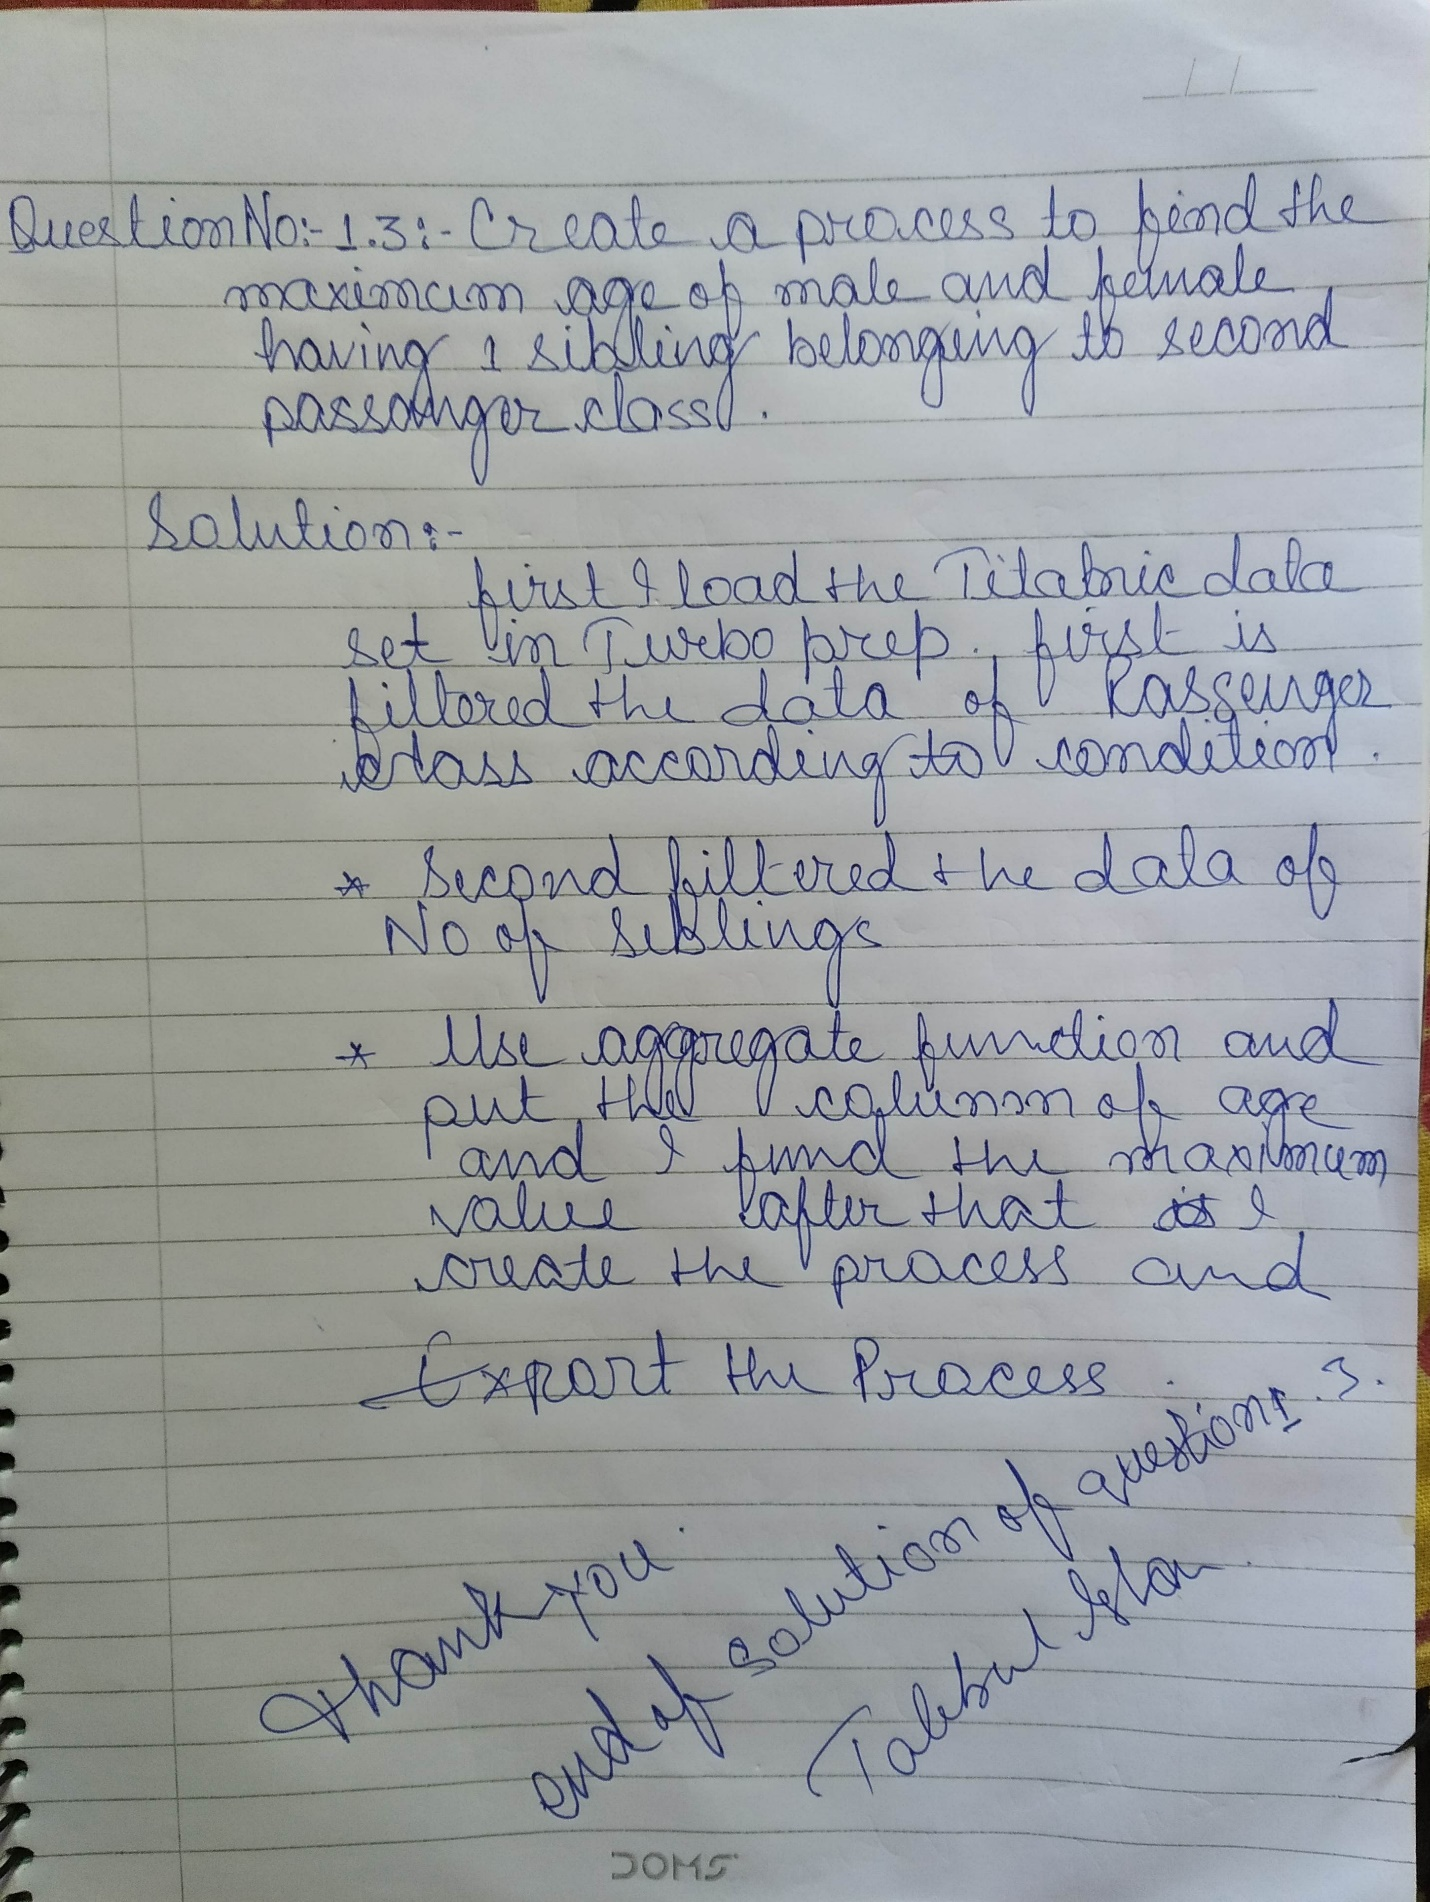 Question No:- 1.3:- Create a process to find the
maximum age of male and female
having 1 sibling belonging to second
passanger class.
Solution:-
first I load the Titatnic data
set in Turbo prep. first is
filtered the data of Passenger
class according to condition.
* Second filtered the data of
No of Siblings
* Use aggregate function and
put the column of age
and I fund the maximum
value after that I
create the process and
Export the Process.
Thank you.
end of solution of question 1.3.
Talebul Islam
DOMS